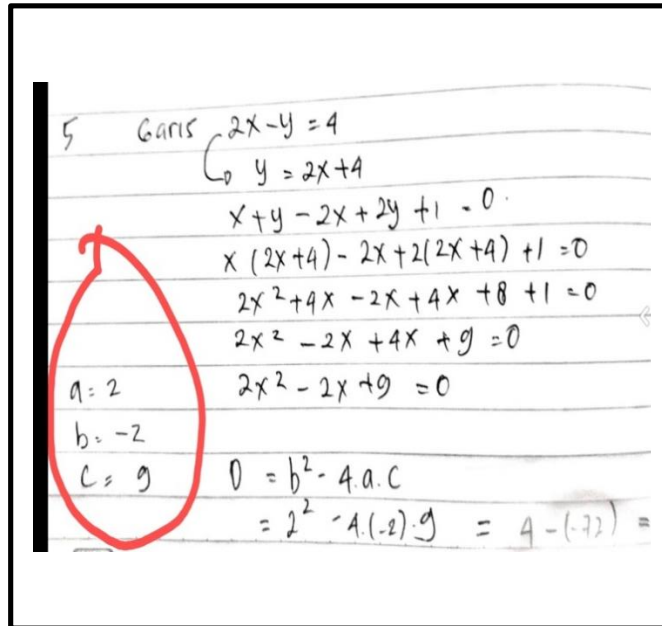 5 Garis 2x-y = 4
y = 2x+4
x+y - 2x + 2y + 1 = 0.
x (2x+4) - 2x + 2(2x+4) + 1 = 0
2x² + 4x - 2x + 4x + 8 + 1 = 0
2x² - 2x + 4x + 9 = 0
a = 2 2x² - 2x + 9 = 0
b = -2
c = 9 D = b² - 4.a.c
= 2² - 4.(-2).9 = 4 - (-72) =